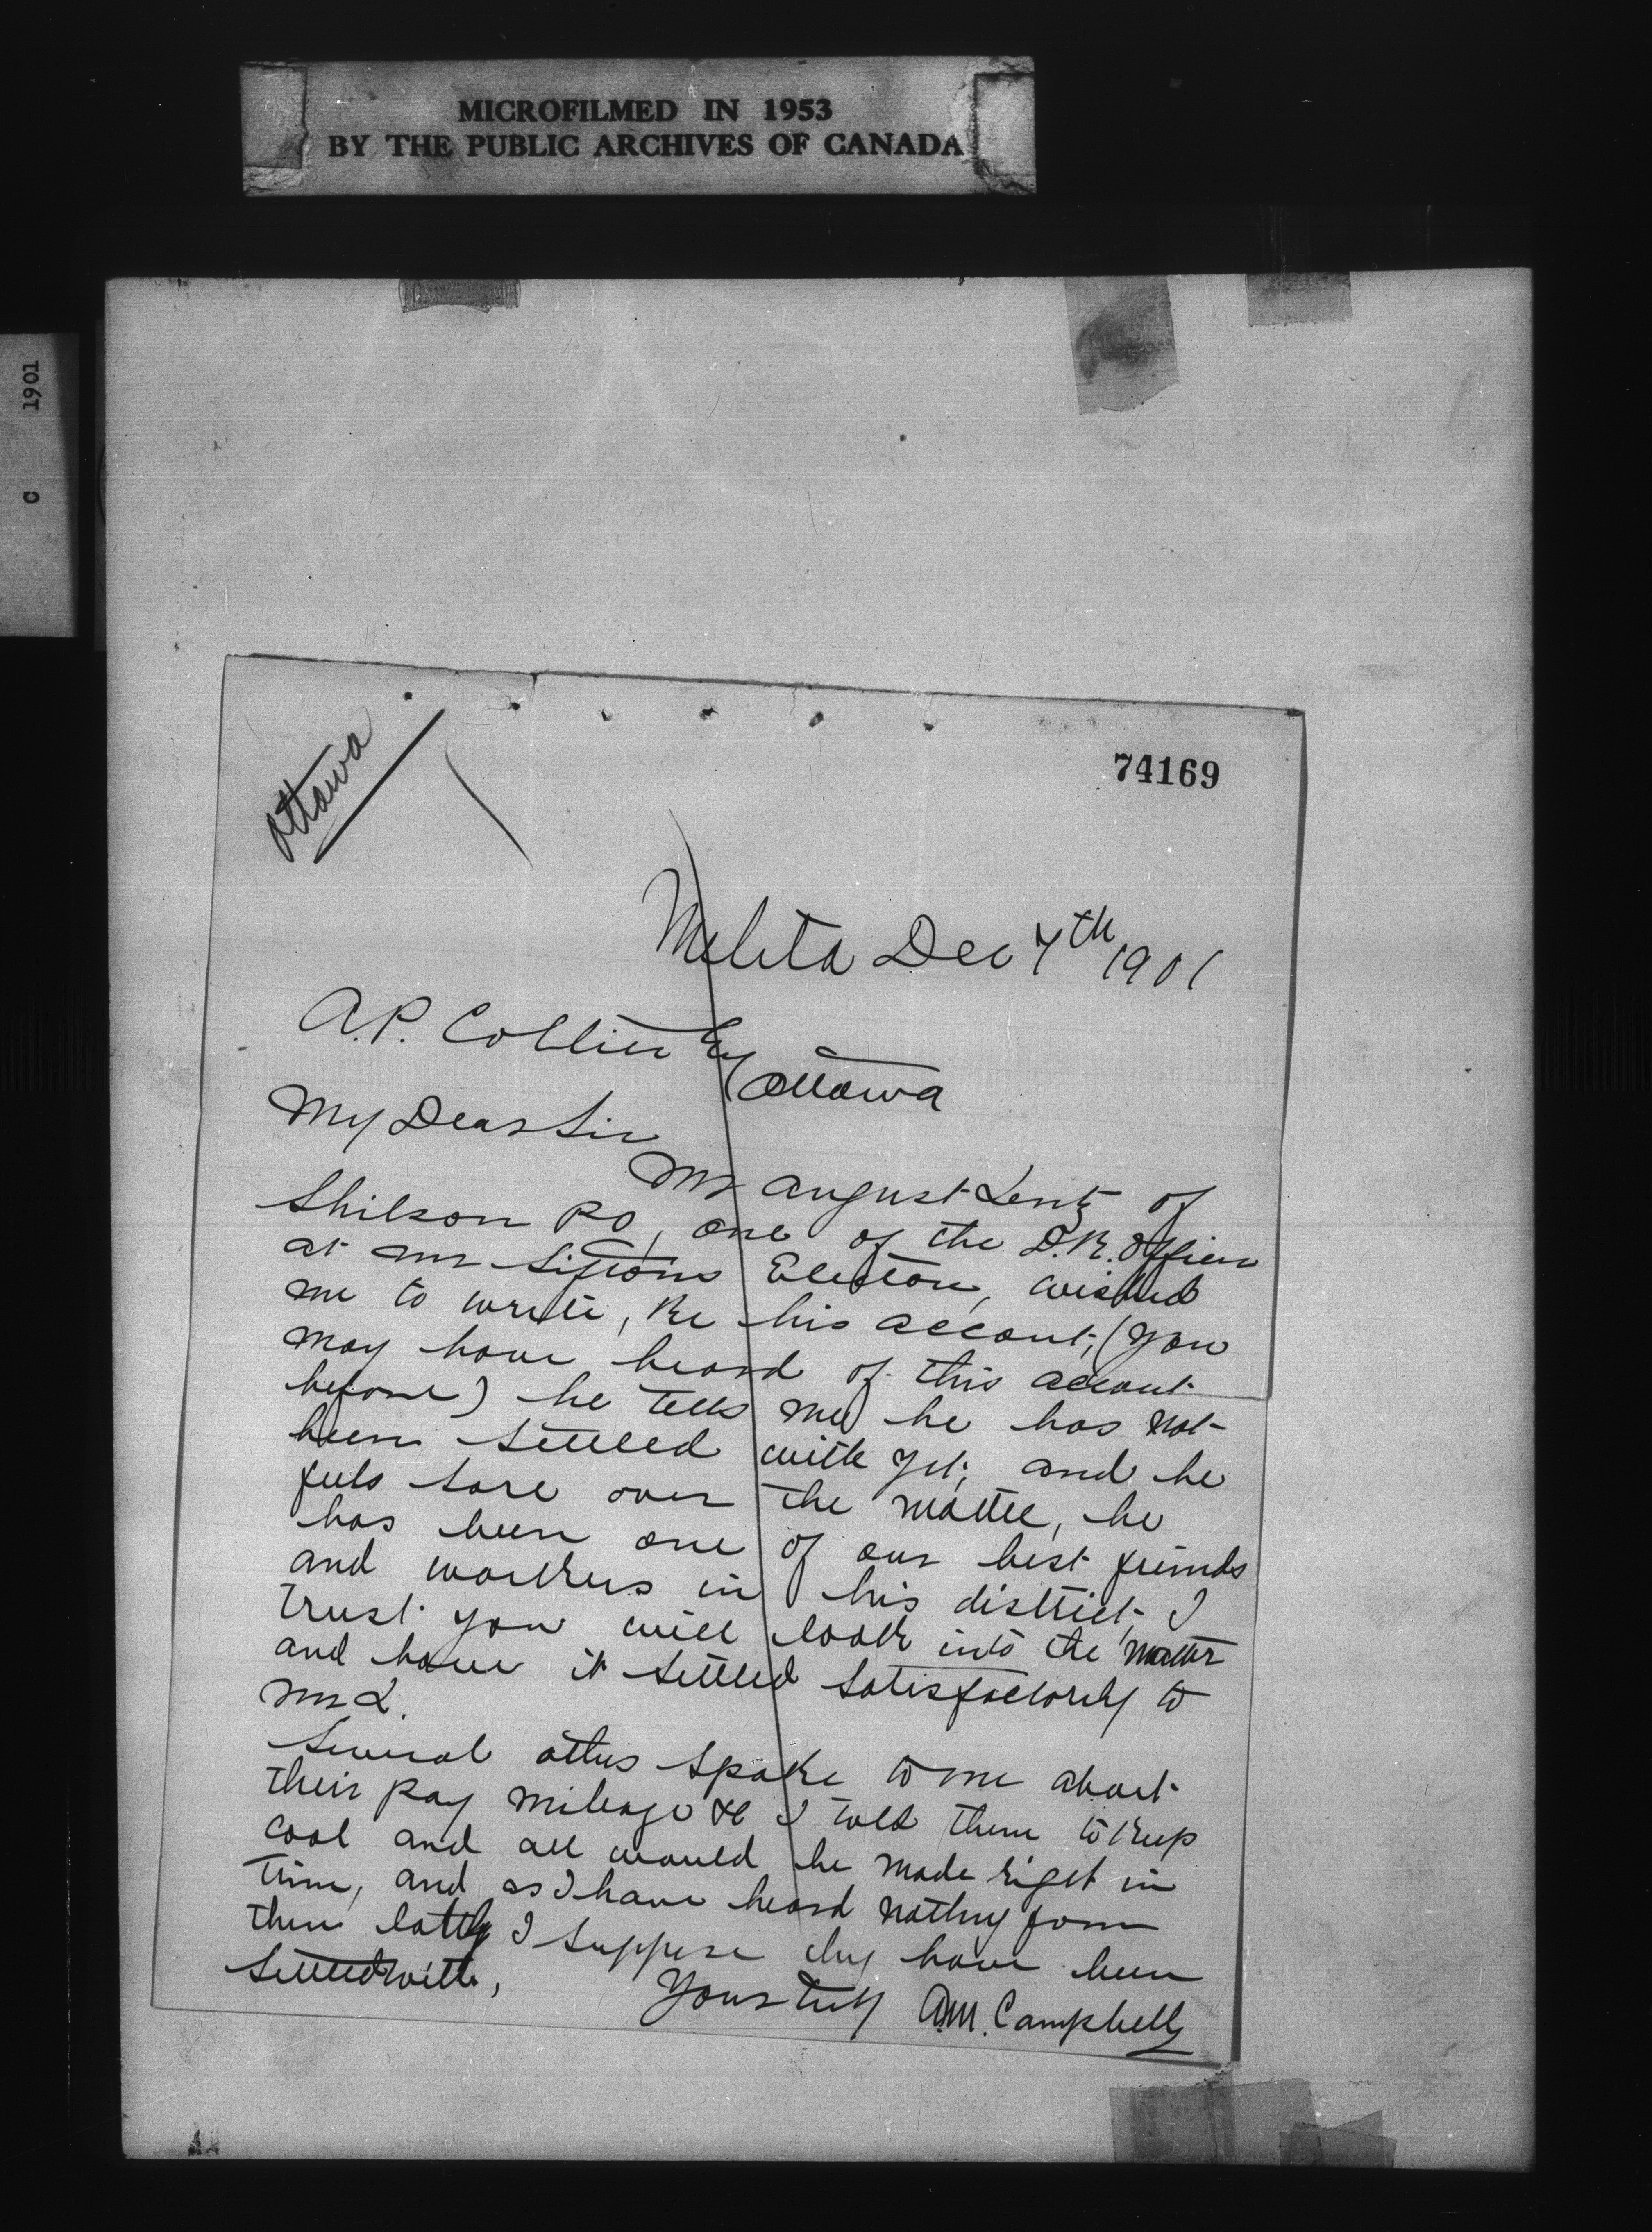 MICROFILMED IN 1953
BY THE PUBLIC ARCHIVES OF CANADA
C 1901
Ottawa
74169
Melita Dec 7th 1901
A.P. Collier Esq
Ottawa
My Dear Sir
Mr August Lentz of
Shilson PO, one of the D.R. Officers
at Mr Siftons Election, wished
me to write, Re his account, (you
may have heard of this account
before) he tells me he has not
been settled with yet, and he
feels sore over the matter, he
has been one of our best friends
and workers in his district, I
trust you will look into the matter
and have it settled satisfactorily to
Mr L.
Several others spoke to me about
their pay mileage &c I told them to keep
cool and all would be made right in
time, and as I have heard nothing from
them lately I suppose they have been
settled with,
Yours truly A.M. Campbell